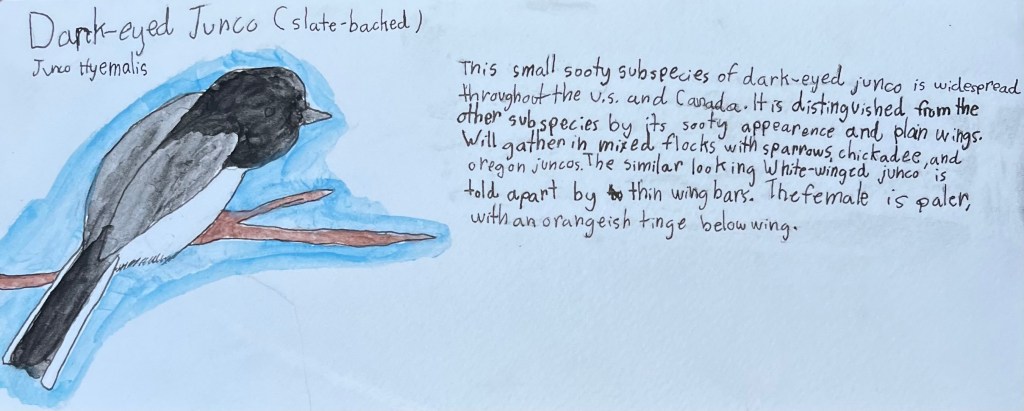 Dark-eyed Junco (slate-backed)
Junco Hyemalis
This small sooty subspecies of dark-eyed junco is widespread
throughout the U.S. and Canada. It is distinguished from the
other subspecies by its sooty appearence and plain wings.
Will gather in mixed flocks with sparrows, chickadee, and
oregon juncos. The similar looking White-winged junco is
told apart by thin wing bars. The female is paler,
with an orangeish tinge below wing.